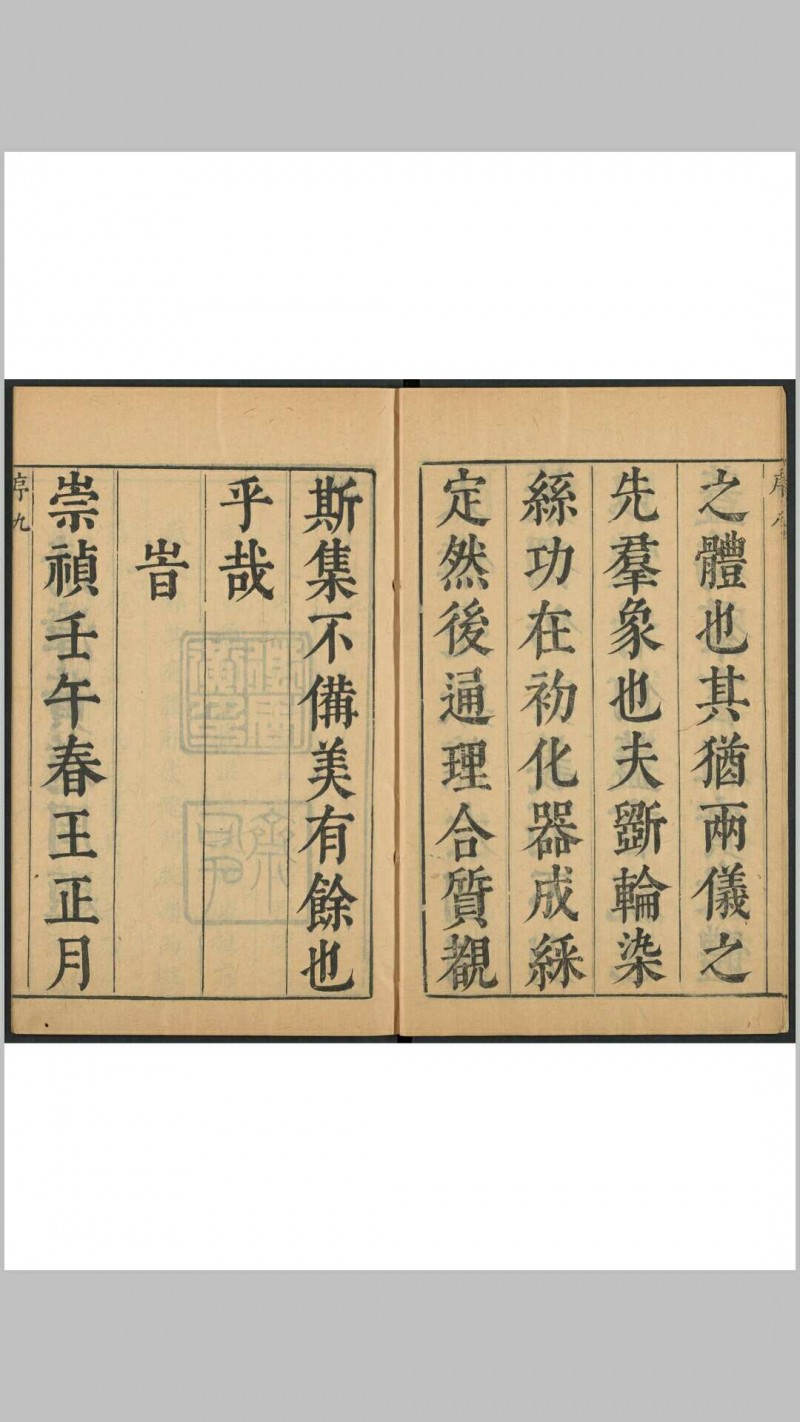 之體也其猶兩儀之
先羣象也夫斵輪染
絲功在初化器成綵
定然後通理合質覩
斯集不備美有餘也
乎哉
旹
崇禎壬午春王正月
序九